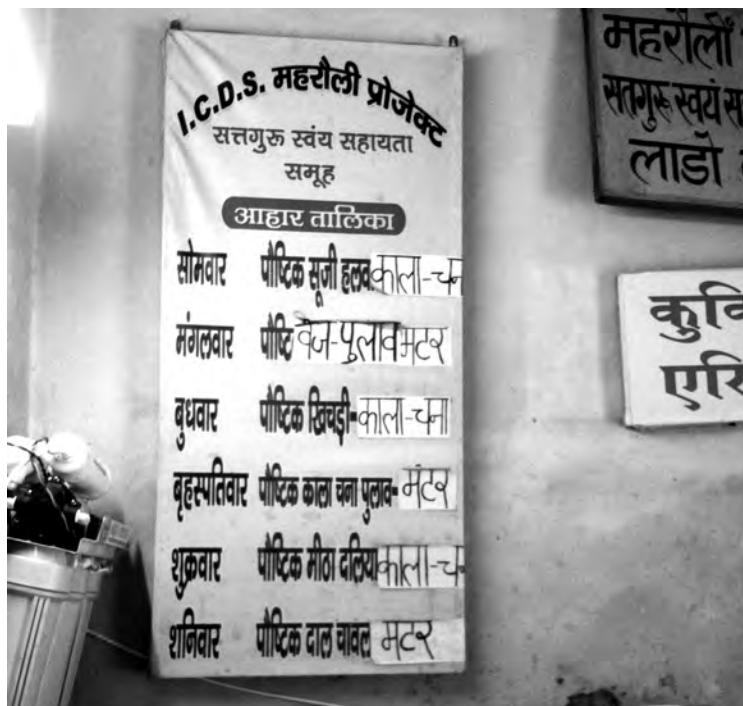 I.C.D.S. महरौली प्रोजेक्ट
सत्तगुरू स्वंय सहायता
समूह
आहार तालिका
सोमवार पौष्टिक सूजी हलव काला-चन
मंगलवार पौष्टि वेज-पुलाव मटर
बुधवार पौष्टिक खिचड़ी- काला-चना
बृहस्पतिवार पौष्टिक काला चना पुलाव- मंटर
शुक्रवार पौष्टिक मीठा दलिया काला-चन
शनिवार पौष्टिक दाल चावल मटर
महरौली
सतगुरू स्वयं स
लाडो
कुवि
एरि